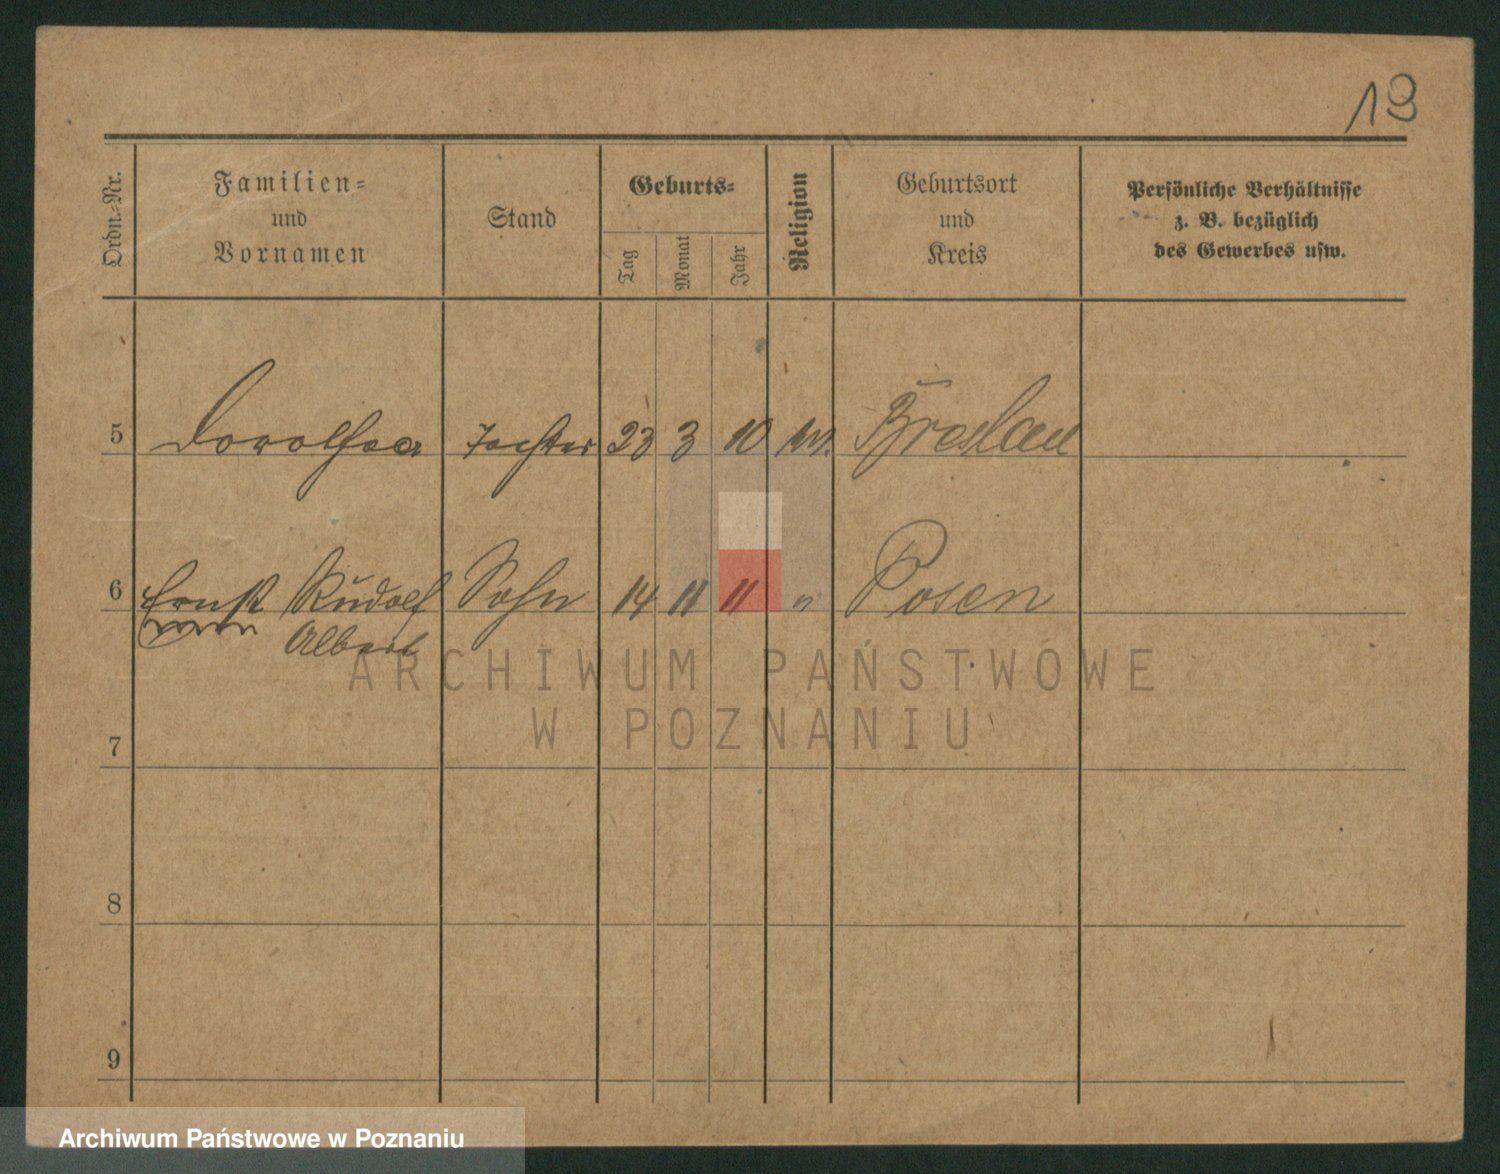 19
Ordn.-Nr.
Familien-
und
Vornamen
Stand
Geburts-
Tag
Monat
Jahr
Religion
Geburtsort
und
Kreis
Persönliche Verhältnisse
z. B. bezüglich
des Gewerbes usw.
5 Dorothea Tochter 23 3 10 Breslau
6 Ernst Rudolf Sohn 14 11 11 " Posen
Albert
ARCHIWUM PAŃSTWOWE
W POZNANIU
7
8
9
Archiwum Państwowe w Poznaniu